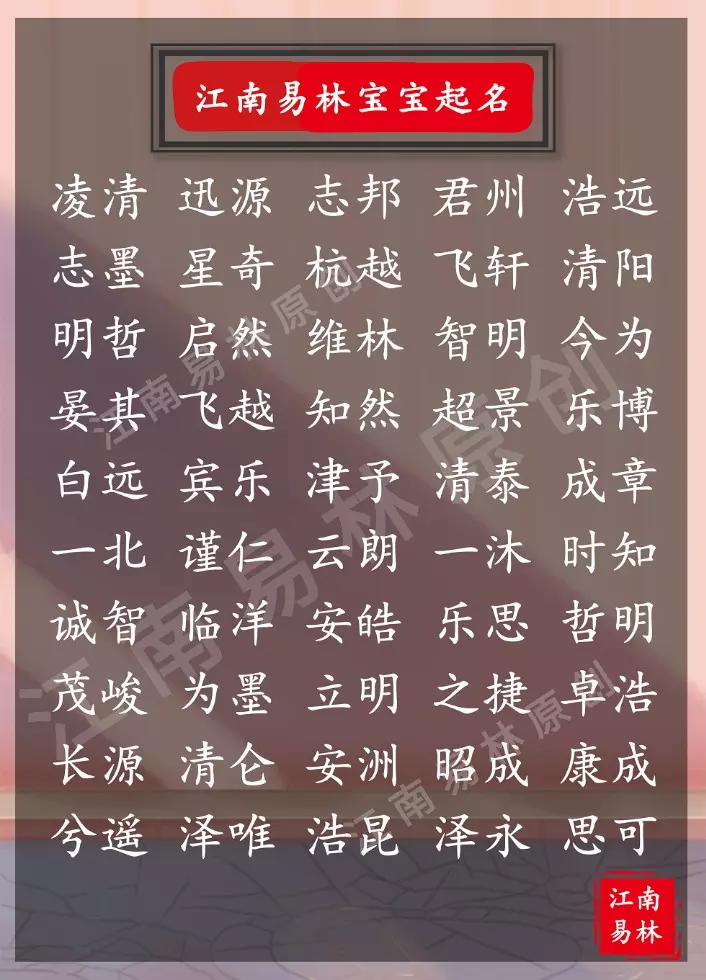 江南易林宝宝起名
凌清 迅源 志邦 君州 浩远
志墨 星奇 杭越 飞轩 清阳
明哲 启然 维林 智明 今为
晏其 飞越 知然 超景 乐博
白远 宾乐 津予 清泰 成章
一北 谨仁 云朗 一沐 时知
诚智 临洋 安皓 乐思 哲明
茂峻 为墨 立明 之捷 卓浩
长源 清仑 安洲 昭成 康成
兮遥 泽唯 浩昆 泽永 思可
江南易林原创
江南易林原创
江南易林原创
江南
易林